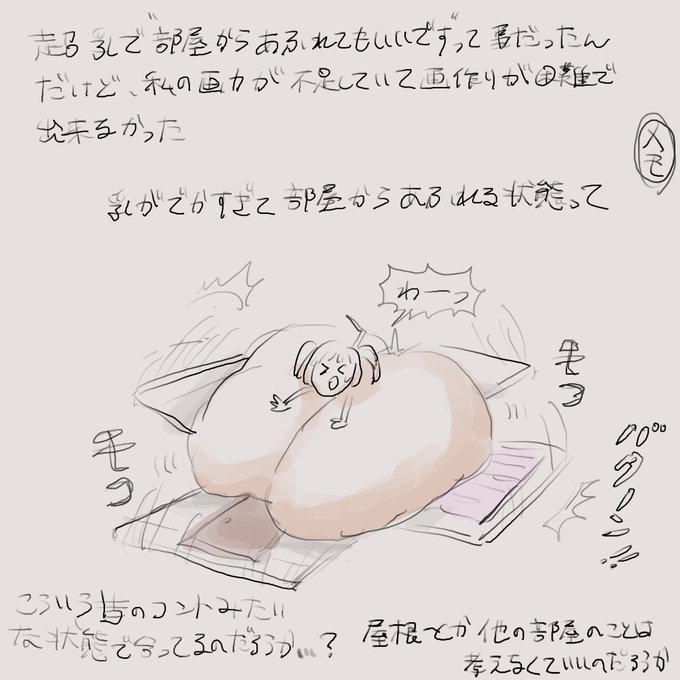 超乳で"部屋からあふれてもいいです"って事だったん
だけど、私の画力が不足していて画作りが困難で
出来なかった
メモ
乳がでかすぎて部屋からあふれる状態って
わーっ
モコ
モコ
バターン!!
こういう昔のコントみたい
な状態で合ってるのだろうか…?
屋根とか他の部屋のことは
考えなくていいのだろうか